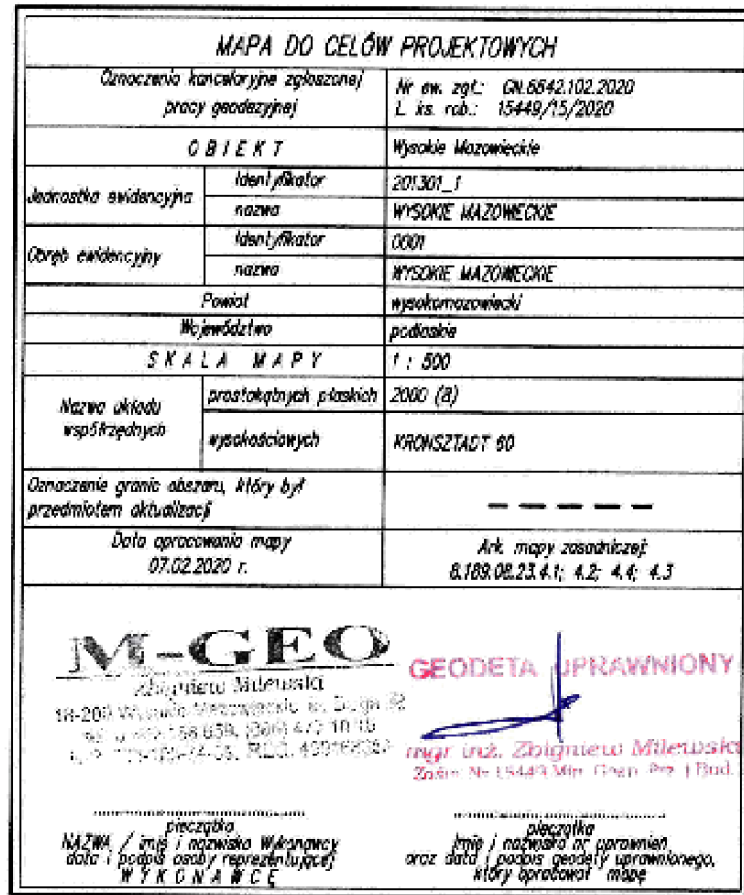 MAPA DO CELÓW PROJEKTOWYCH
Oznaczenie kancelaryjne zgłoszonej
pracy geodezyjnej
Nr ew. zgł.: GN.6642.102.2020
L. ks. rob.: 15449/15/2020
OBIEKT
Wysokie Mazowieckie
Jednostka ewidencyjna
Identyfikator
201301_1
nazwa
WYSOKIE MAZOWIECKIE
Obręb ewidencyjny
Identyfikator
0001
nazwa
WYSOKIE MAZOWIECKIE
Powiat
wysokomazowiecki
Województwo
podlaskie
SKALA MAPY
1 : 500
Nazwa układu
współrzędnych
prostokątnych płaskich
2000 (8)
wysokościowych
KRONSZTADT 60
Oznaczenie granic obszaru, który był
przedmiotem aktualizacji
Data opracowania mapy
07.02.2020 r.
Ark. mapy zasadniczej:
8.189.08.23.4.1; 4.2; 4.4; 4.3
M-GEO
Zbigniew Milewski
18-200
GEODETA UPRAWNIONY
mgr inż. Zbigniew Milewski
Nr 15449 Min. Bud.
pieczątka
NAZWA / imię i nazwisko Wykonawcy
data i podpis osoby reprezentującej
WYKONAWCĘ
pieczątka
imię i nazwisko nr uprawnień
oraz data i podpis geodety uprawnionego,
który opracował mapę